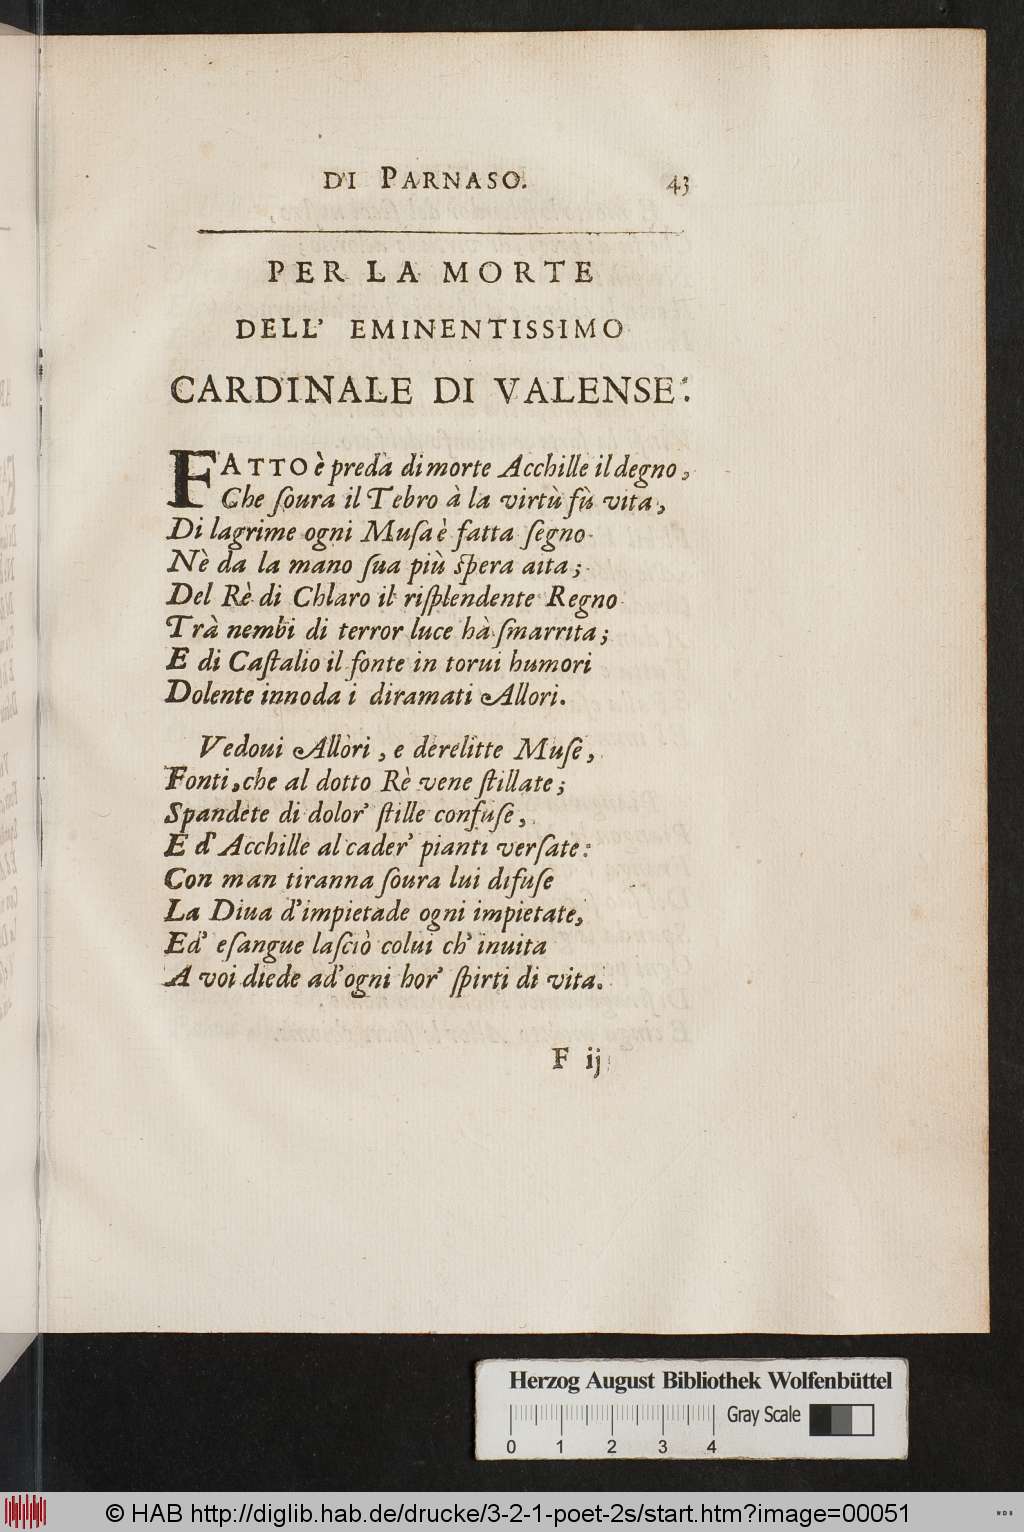 DI PARNASO. 43
PER LA MORTE
DELL' EMINENTISSIMO
CARDINALE DI VALENSE.
FATTO è preda di morte Acchille il degno,
Che ſoura il Tebro à la virtù fù vita,
Di lagrime ogni Muſa è fatta ſegno
Nè da la mano ſua più ſpera aita;
Del Rè di Chlaro il riſplendente Regno
Trà nembi di terror luce hà ſmarrita;
E di Caſtalio il fonte in torui humori
Dolente innoda i diramati Allori.
Vedoui Allori, e derelitte Muſe,
Fonti, che al dotto Rè vene ſtillate;
Spandete di dolor' ſtille confuſe,
E d' Acchille al cader' pianti verſate:
Con man tiranna ſoura lui difuſe
La Diua d'impietade ogni impietate,
Ed' eſangue laſciò colui ch' inuita
A voi diede ad' ogni hor' ſpirti di vita.
F ij
Herzog August Bibliothek Wolfenbüttel
Gray Scale
0 1 2 3 4
© HAB http://diglib.hab.de/drucke/3-2-1-poet-2s/start.htm?image=00051